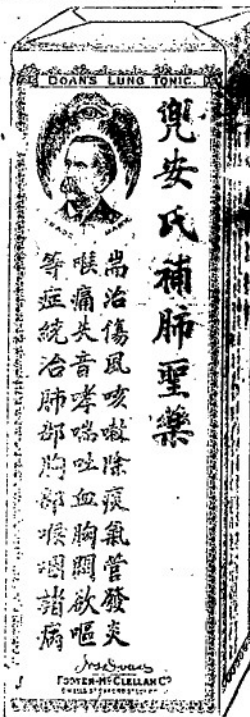 DOAN'S LUNG TONIC.
TRADE MARK
兜安氏補肺聖藥
耑治傷風咳嗽除痰氣管發炎
喉痛失音哮喘吐血胸悶欲嘔
等症統治肺部胸部喉咽諸病
Jas Doan
FOSTER-McCLELLAN Co